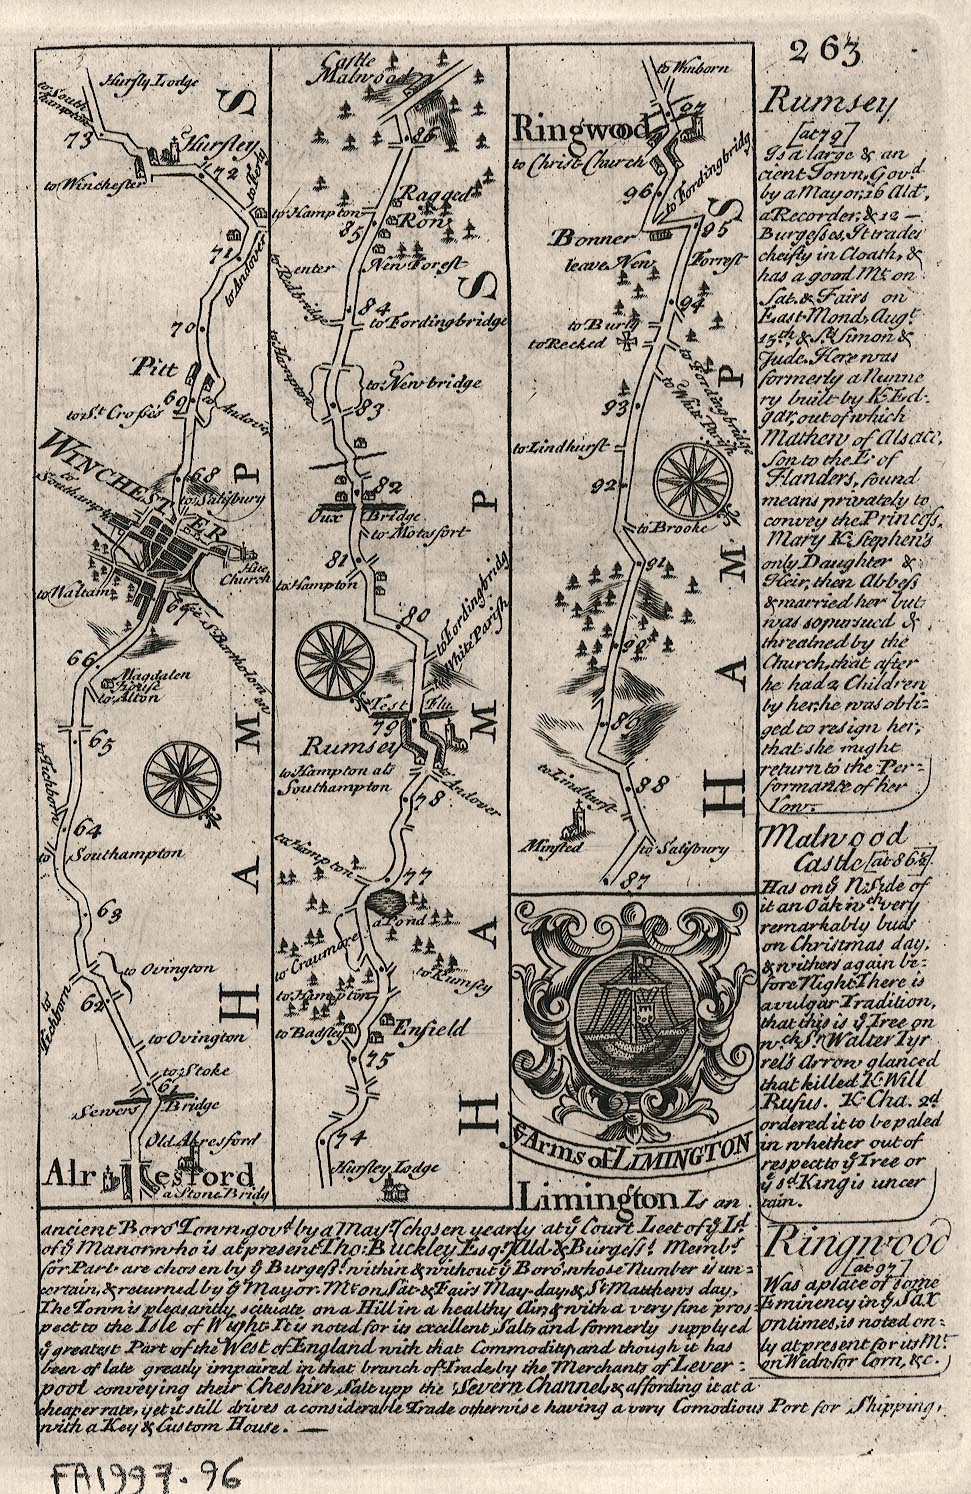 263
Hursly Lodge
to South
hampton
73
Hursley
72
to Winchester
71
to Andover
70
Pitt
69
to St. Crosses
to Andover
68
WINCHESTER
to Southampton
to Salisbury
Hite
Church
to Waltam
67
to St. Bartholomew
66
Magdalen
house
to Alton
65
to Tichborn
64
to
Southampton
63
to Ovington
62
to Tichborn
to Ovington
to Stoke
61
Sewers Bridge
Old Alresford
Alresford
a Stone Bridg
HAMPS
Castle
Malwood
86
Ragged
Row
to Hampton
85
enter New Forest
to Redbridge
84
to Fordingbridge
to Newbridge
to Hampton
83
82
Oux Bridge
to Motesfort
81
to Hampton
80
to Fordingbridg
White Parish
Test Flu.
79
Rumsey
to Hampton als
Southampton
to Andover
78
to Hampton
77
a Pond
to Craumore
to Rumsey
to Hampton
to Badsley
Enfield
75
74
Hursley Lodge
HAMPS
to Winborn
97
Ringwood
to Christ Church
to Fordingbridg
96
95
Bonner
leave New Forrest
94
to Burly
to Recked
to Fordingbridge
to White Parish
93
to Lindhurst
92
to Brooke
91
90
89
to Lindhurst
88
Minsted
to Salisbury
87
HAMPS
ye Arms of LIMINGTON
Rumsey
[at 79]
Is a large & an
cient Town, Govd.
by a Mayor, 16 Ald.
a Recorder, & 12 —
Burgesses, It trades
cheifly in Cloath, &
has a good Mt. on
Sat. & Fairs on
East-Mond, Augt.
15th, & Sd. Simon &
Jude. Here was
formerly a Nunne
ry built by K. Ed-
gar, out of which
Mathew of Alsace,
Son to the E. of
Flanders, found
means privately to
convey the Princess,
Mary K. Stephen's
only Daughter &
Heir, then Abbess
& married her but
was so pursued &
threatned by the
Church, that after
he had 2 Children
by her he was obli-
ged to resign her,
that she might
return to the Per-
formance of her
Vow.
Malwood
Castle [at 86½]
Has on ye N. Side of
it an Oak wch. very
remarkably buds
on Christmas day,
& withers again be-
fore Night There is
a vulgar Tradition,
that this is ye Tree on
wch. Sr. Walter Tyr
rel's Arrow glanced
that killed K. Will
Rufus. K. Cha. 2d
ordered it to be paled
in whether out of
respect to ye Tree or
ye sd. King is uncer
tain.
Ringwood
[at 97]
Was a place of some
Eminency in ye Sax
on times, is noted on-
ly at present for its Mt.
on Wedn. for Corn, &c.
Limington Is an
ancient Boro' Town, govd. by a Mayr. (chosen yearly at ye Court Leet of ye Ld.
of ye Manor who is at present Tho: Buckley Esqr.) Ald. & Burgess: Membs.
for Part. are chosen by ye Burgess: within & without ye Boro', whose Number is un-
certain, & returned by ye Mayor. Mt. on Sat. & Fairs May-day, & St. Matthews day,
The Town is pleasantly scituate on a Hill in a healthy Air, & with a very fine pros
pect to the Isle of Wight. It is noted for its excellent Salts and formerly supplyed
ye greatest Part of the West of England with that Commodity and though it has
been of late greatly impaired in that branch of Trade by the Merchants of Lever-
pool conveying their Cheshire Salt upp the Severn Channel, & affording it at a
cheaper rate, yet it still drives a considerable Trade otherwise having a very Comodious Port for Shipping,
with a Key & Custom House. —
FA1997.96